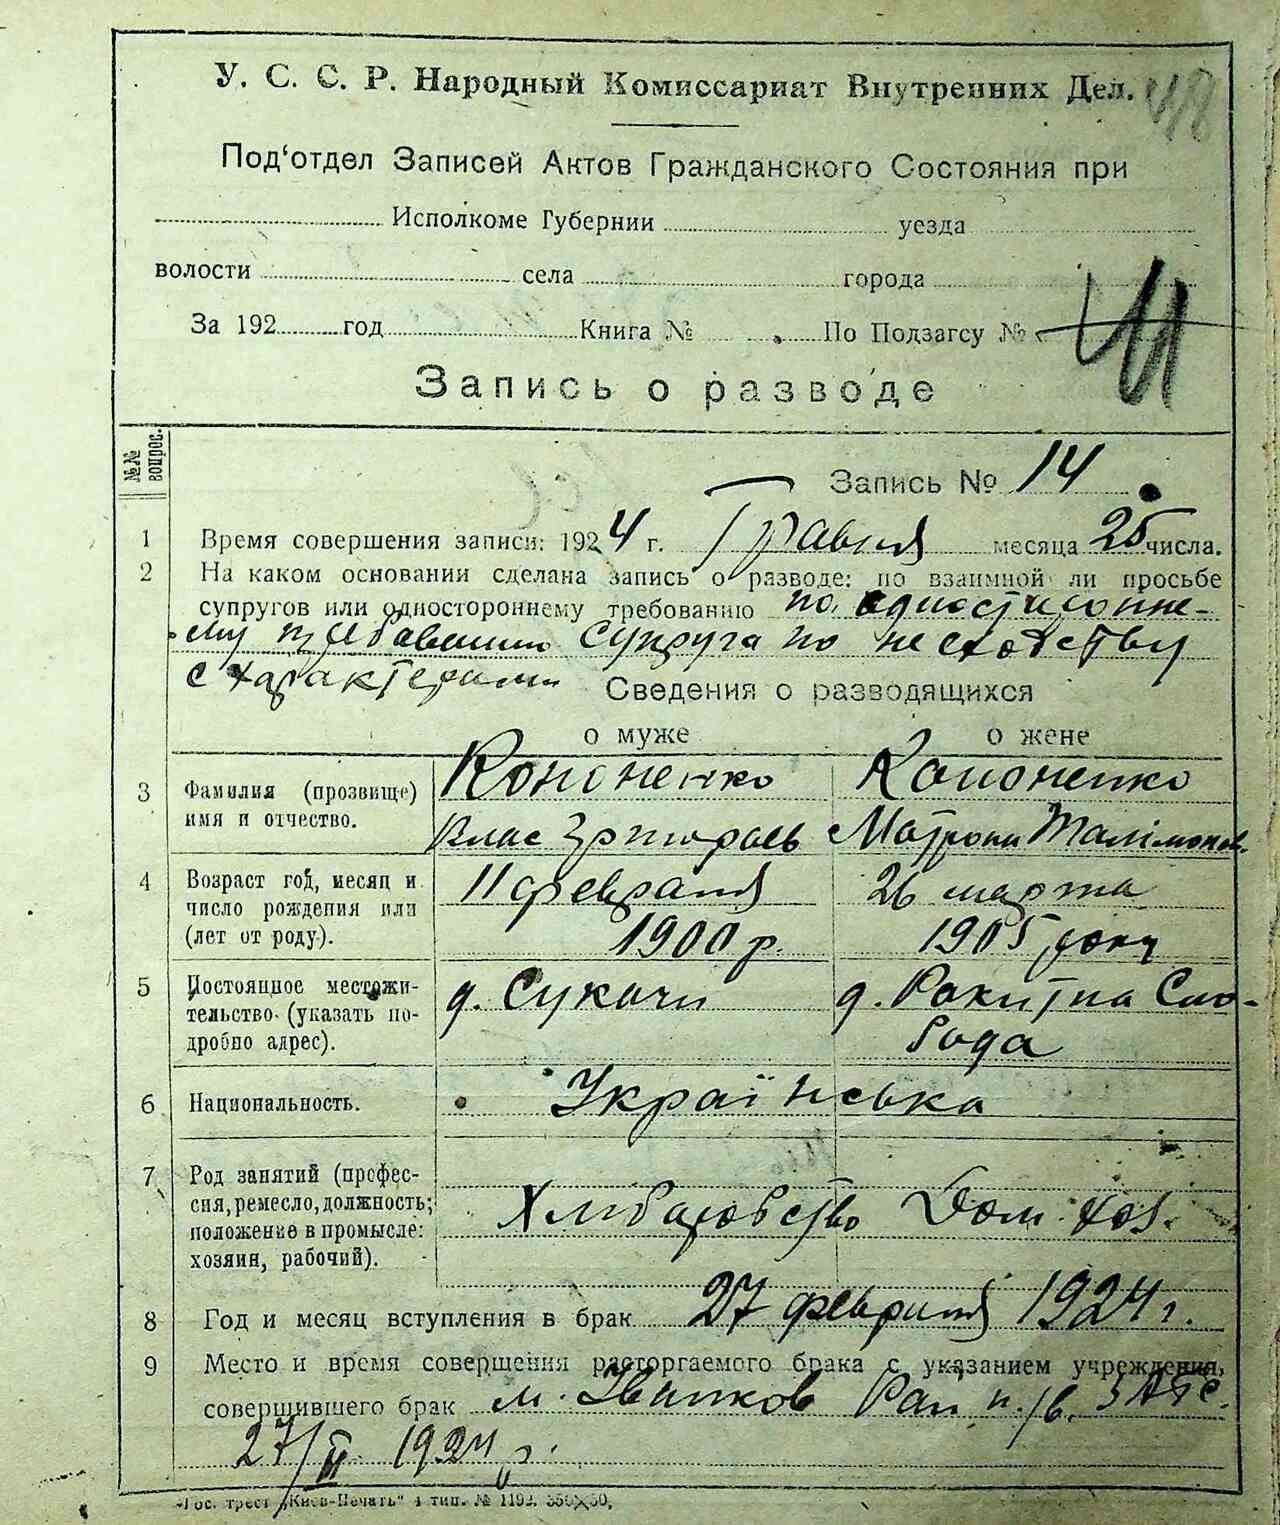 48
У. С. С. Р. Народный Комиссариат Внутренних Дел.
Под'отдел Записей Актов Гражданского Состояния при
Исполкоме Губернии уезда
волости села города
За 192 год Книга № По Подзагсу №
Запись о разводе
№№ вопрос.
Запись № 14
1 Время совершения записи: 1924 г. Травня месяца 25 числа.
2 На каком основании сделана запись о разводе: по взаимной ли просьбе
супругов или одностороннему требованию по одностуронне-
му требованию супруга по несходству
с характерами Сведения о разводящихся
о муже о жене
3 Фамилия (прозвище) имя и отчество.
Кононенко Кононенко
Влас Григорьев Матрона Талімонов.
4 Возраст год, месяц и число рождения или (лет от роду).
11 февраля 26 марта
1900 р. 1905 року
5 Постоянное местожи-
тельство (указать по-
дробно адрес).
д. Сукачи д. Ракитна Сло-
бода
6 Национальность. Українська
7 Род занятий (профес-
сия, ремесло, должность;
положение в промысле:
хозяин, рабочий).
Хліборобство Дом. хоз.
8 Год и месяц вступления в брак 27 февраля 1924 г.
9 Место и время совершения расторгаемого брака с указанием учреждения,
совершившего брак м. Іванков Рай п/в. ЗАГС.
27/II 1924 р.
Гос. трест „Киев-Печать" 4 тип. № 1192. 350×50.